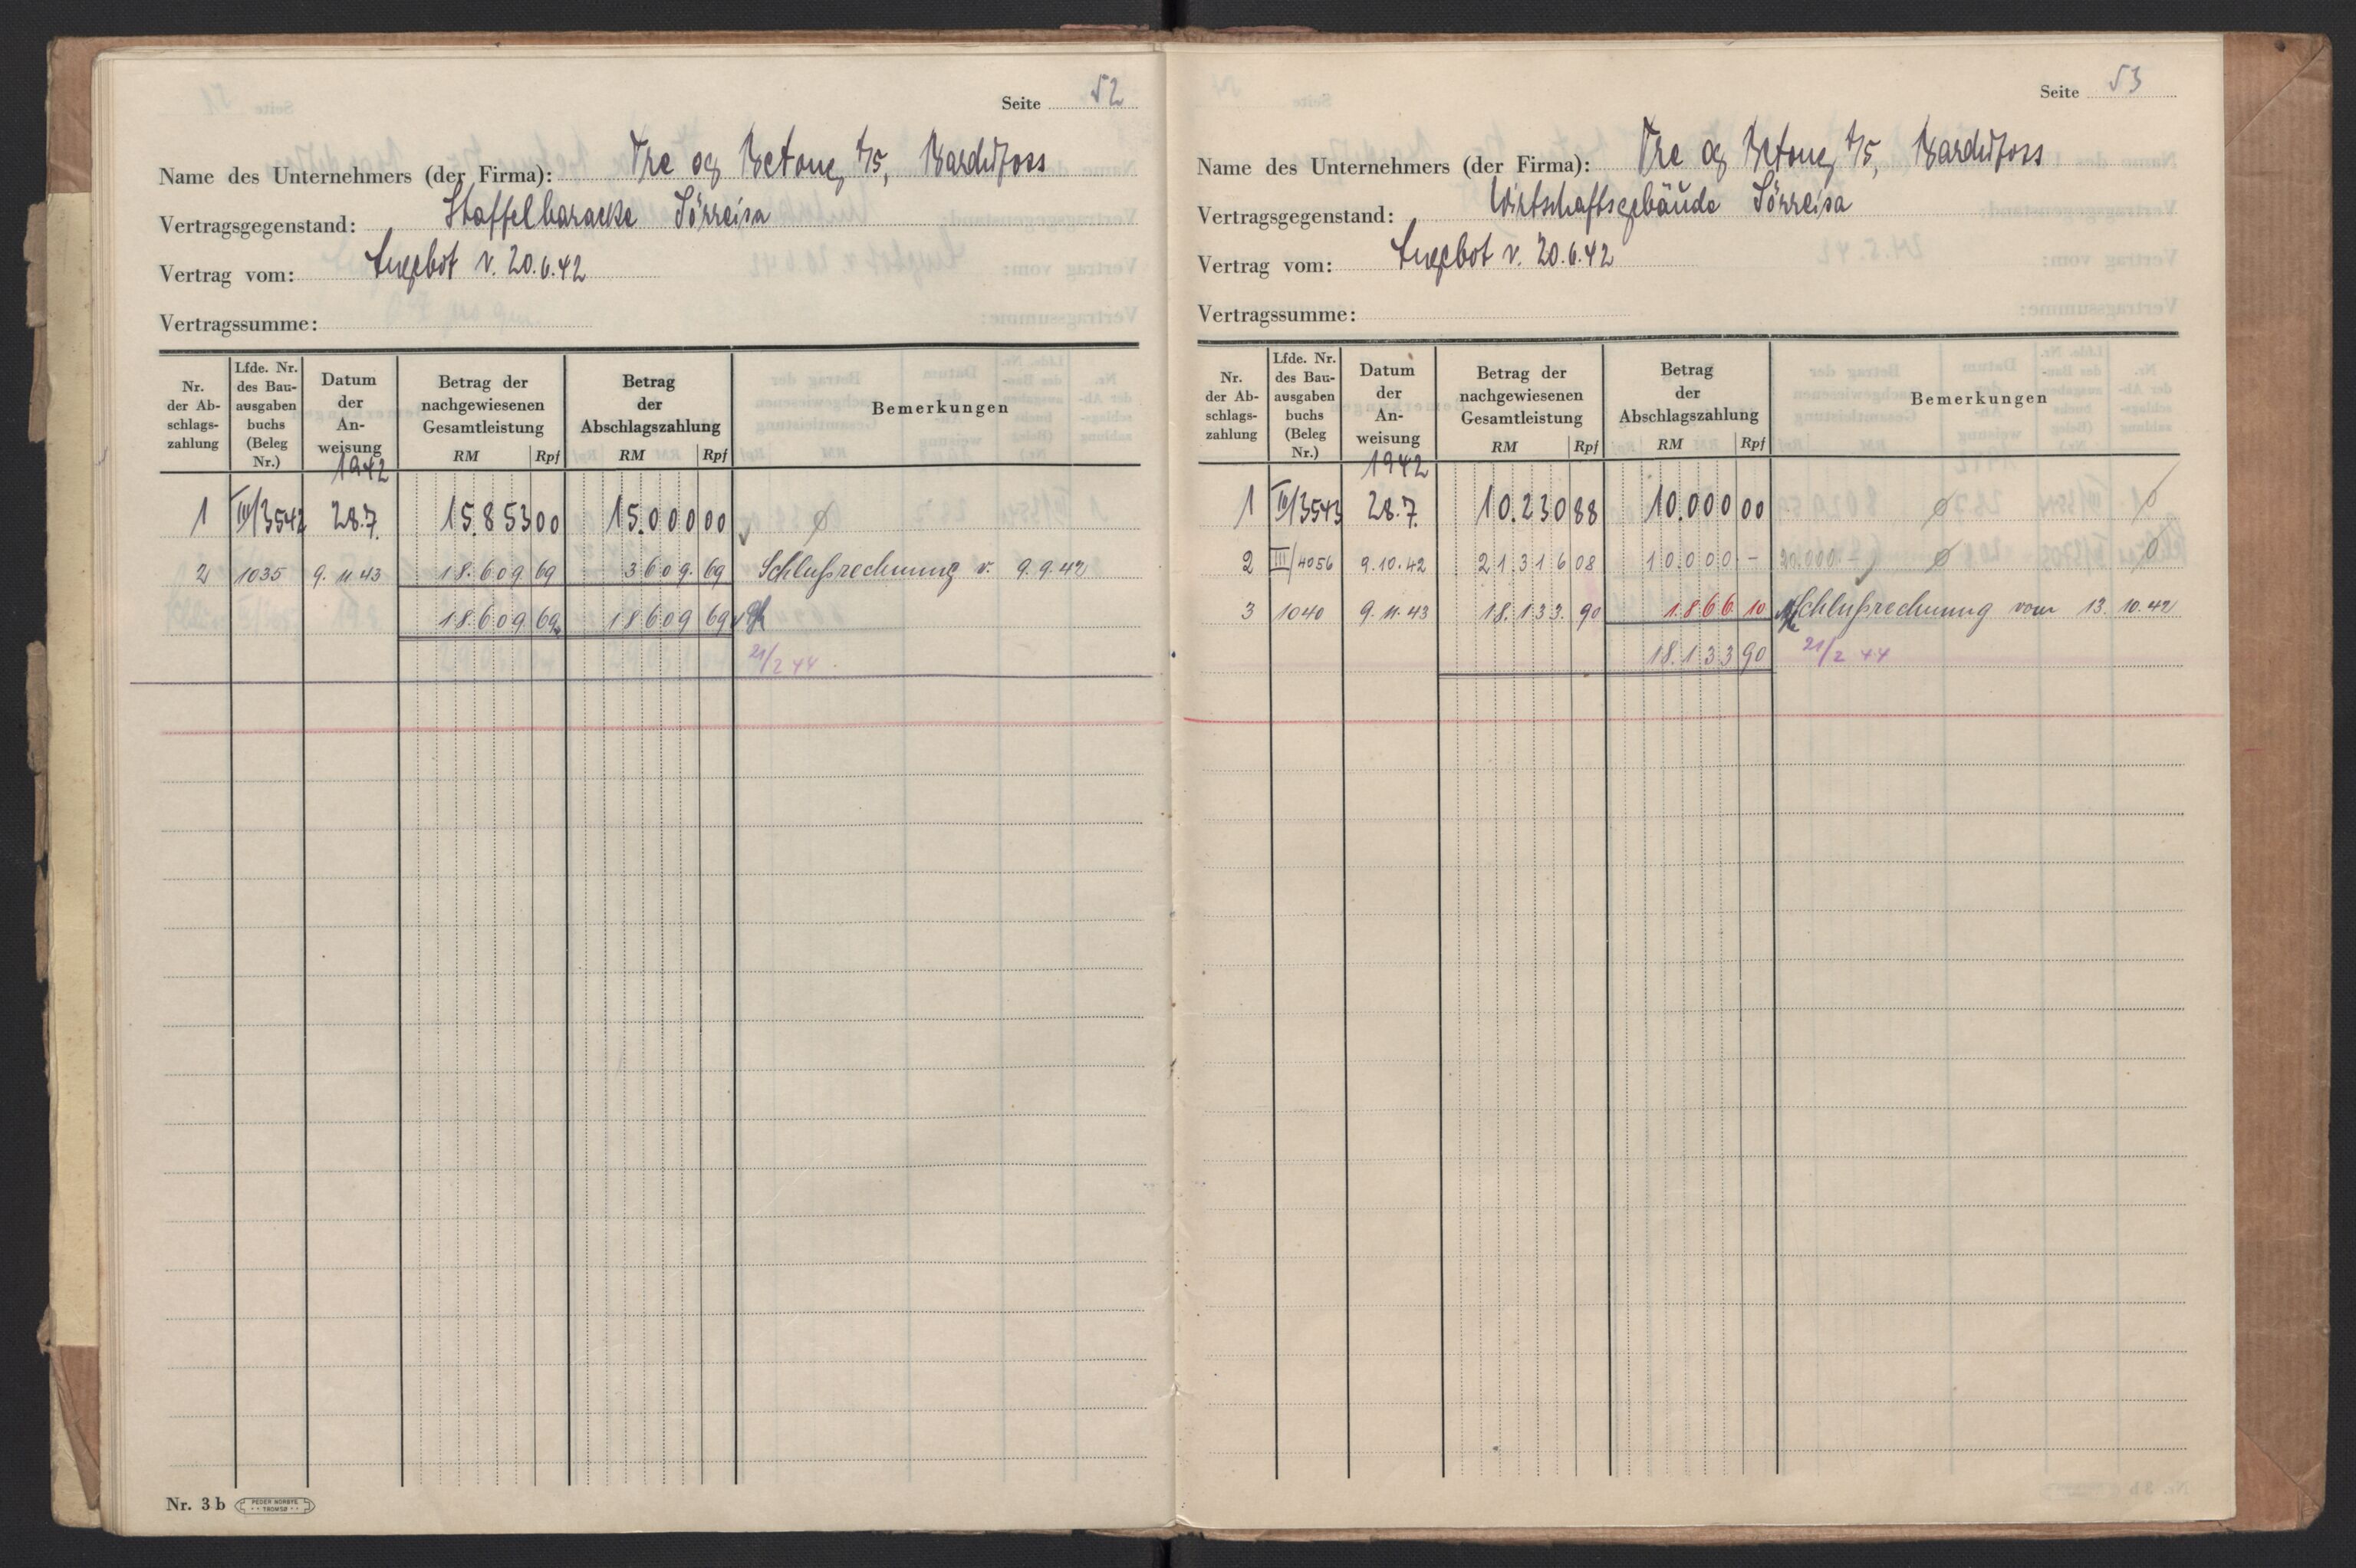 Seite 52
Name des Unternehmers (der Firma): Tre og Betong A/S, Bardufoss
Vertragsgegenstand: Staffelbaracke Sörreisa
Vertrag vom: Angebot v. 20.6.42
Vertragssumme:
Nr. der Ab-schlags-zahlung | Lfde. Nr. des Bau-ausgaben buchs (Beleg Nr.) | Datum der An-weisung | Betrag der nachgewiesenen Gesamtleistung RM Rpf | Betrag der Abschlagszahlung RM Rpf | Bemerkungen
1942
1 III/3542 28.7. 15.853 00 15.000 00 ø
2 1035 9.11.43 18.609 69 3609. 69 Schlußrechnung v. 9.9.42
18.609 69 18609 69
21/2 44.
Nr. 3 b PEDER NORBYE TROMSØ
Seite 53
Name des Unternehmers (der Firma): Tre og Betong A/S, Bardufoss
Vertragsgegenstand: Wirtschaftsgebäude Sörreisa
Vertrag vom: Angebot v. 20.6.42
Vertragssumme:
Nr. der Ab-schlags-zahlung | Lfde. Nr. des Bau-ausgaben buchs (Beleg Nr.) | Datum der An-weisung | Betrag der nachgewiesenen Gesamtleistung RM Rpf | Betrag der Abschlagszahlung RM Rpf | Bemerkungen
1942
1 III/3543 28.7. 10.230 88 10.000 00 ø
2 III/4056 9.10.42 21316 08 10000 - 20.000.- ø
3 1040 9.11.43 18.133. 90 1.866 10 Schlußrechnung vom 13.10.42
18.133 90 21/2 44